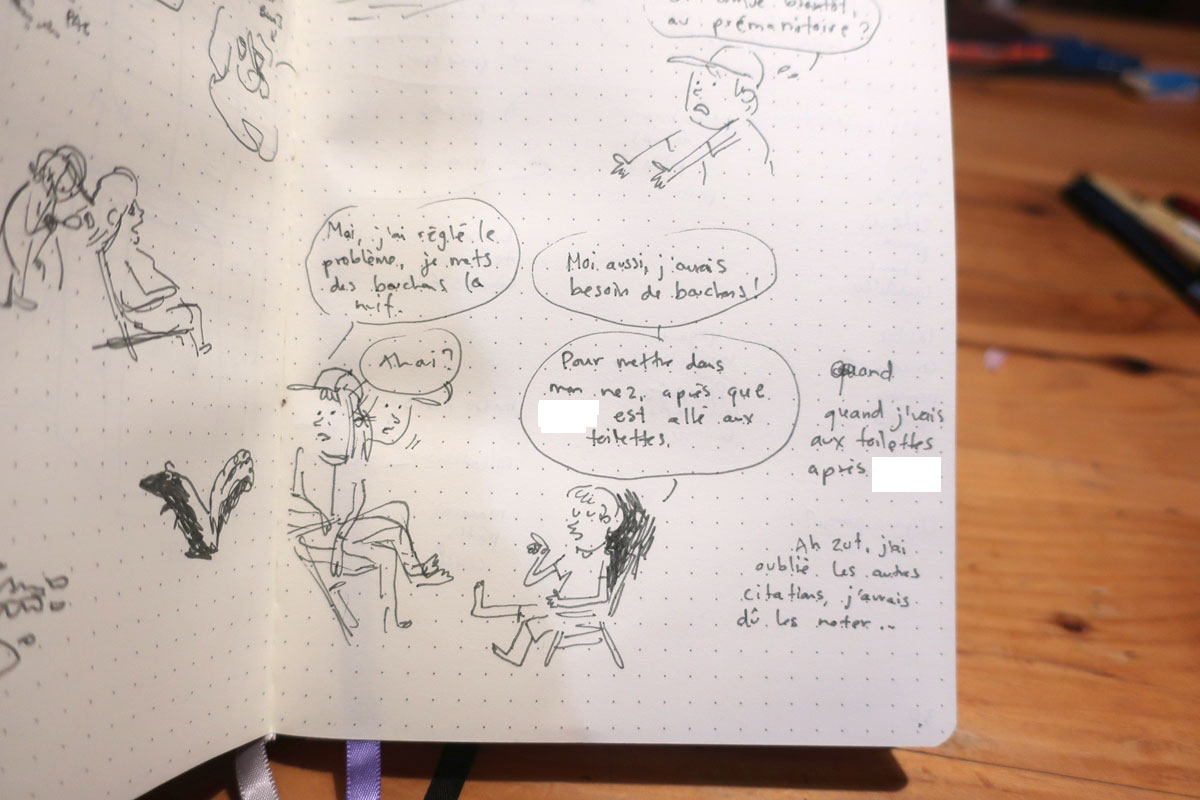 Père
bientôt,
au prémanistoire?
Moi, j'ai réglé le
problème, je mets
des bouchons la
nuit.
Moi aussi, j'aurais
besoin de bouchons!
Ah oui?
Pour mettre dans
mon nez, après que
est allé aux
toilettes.
quand
quand j'vais
aux toilettes
après
Ah zut, j'ai
oublié les autres
citations, j'aurais
dû les noter...